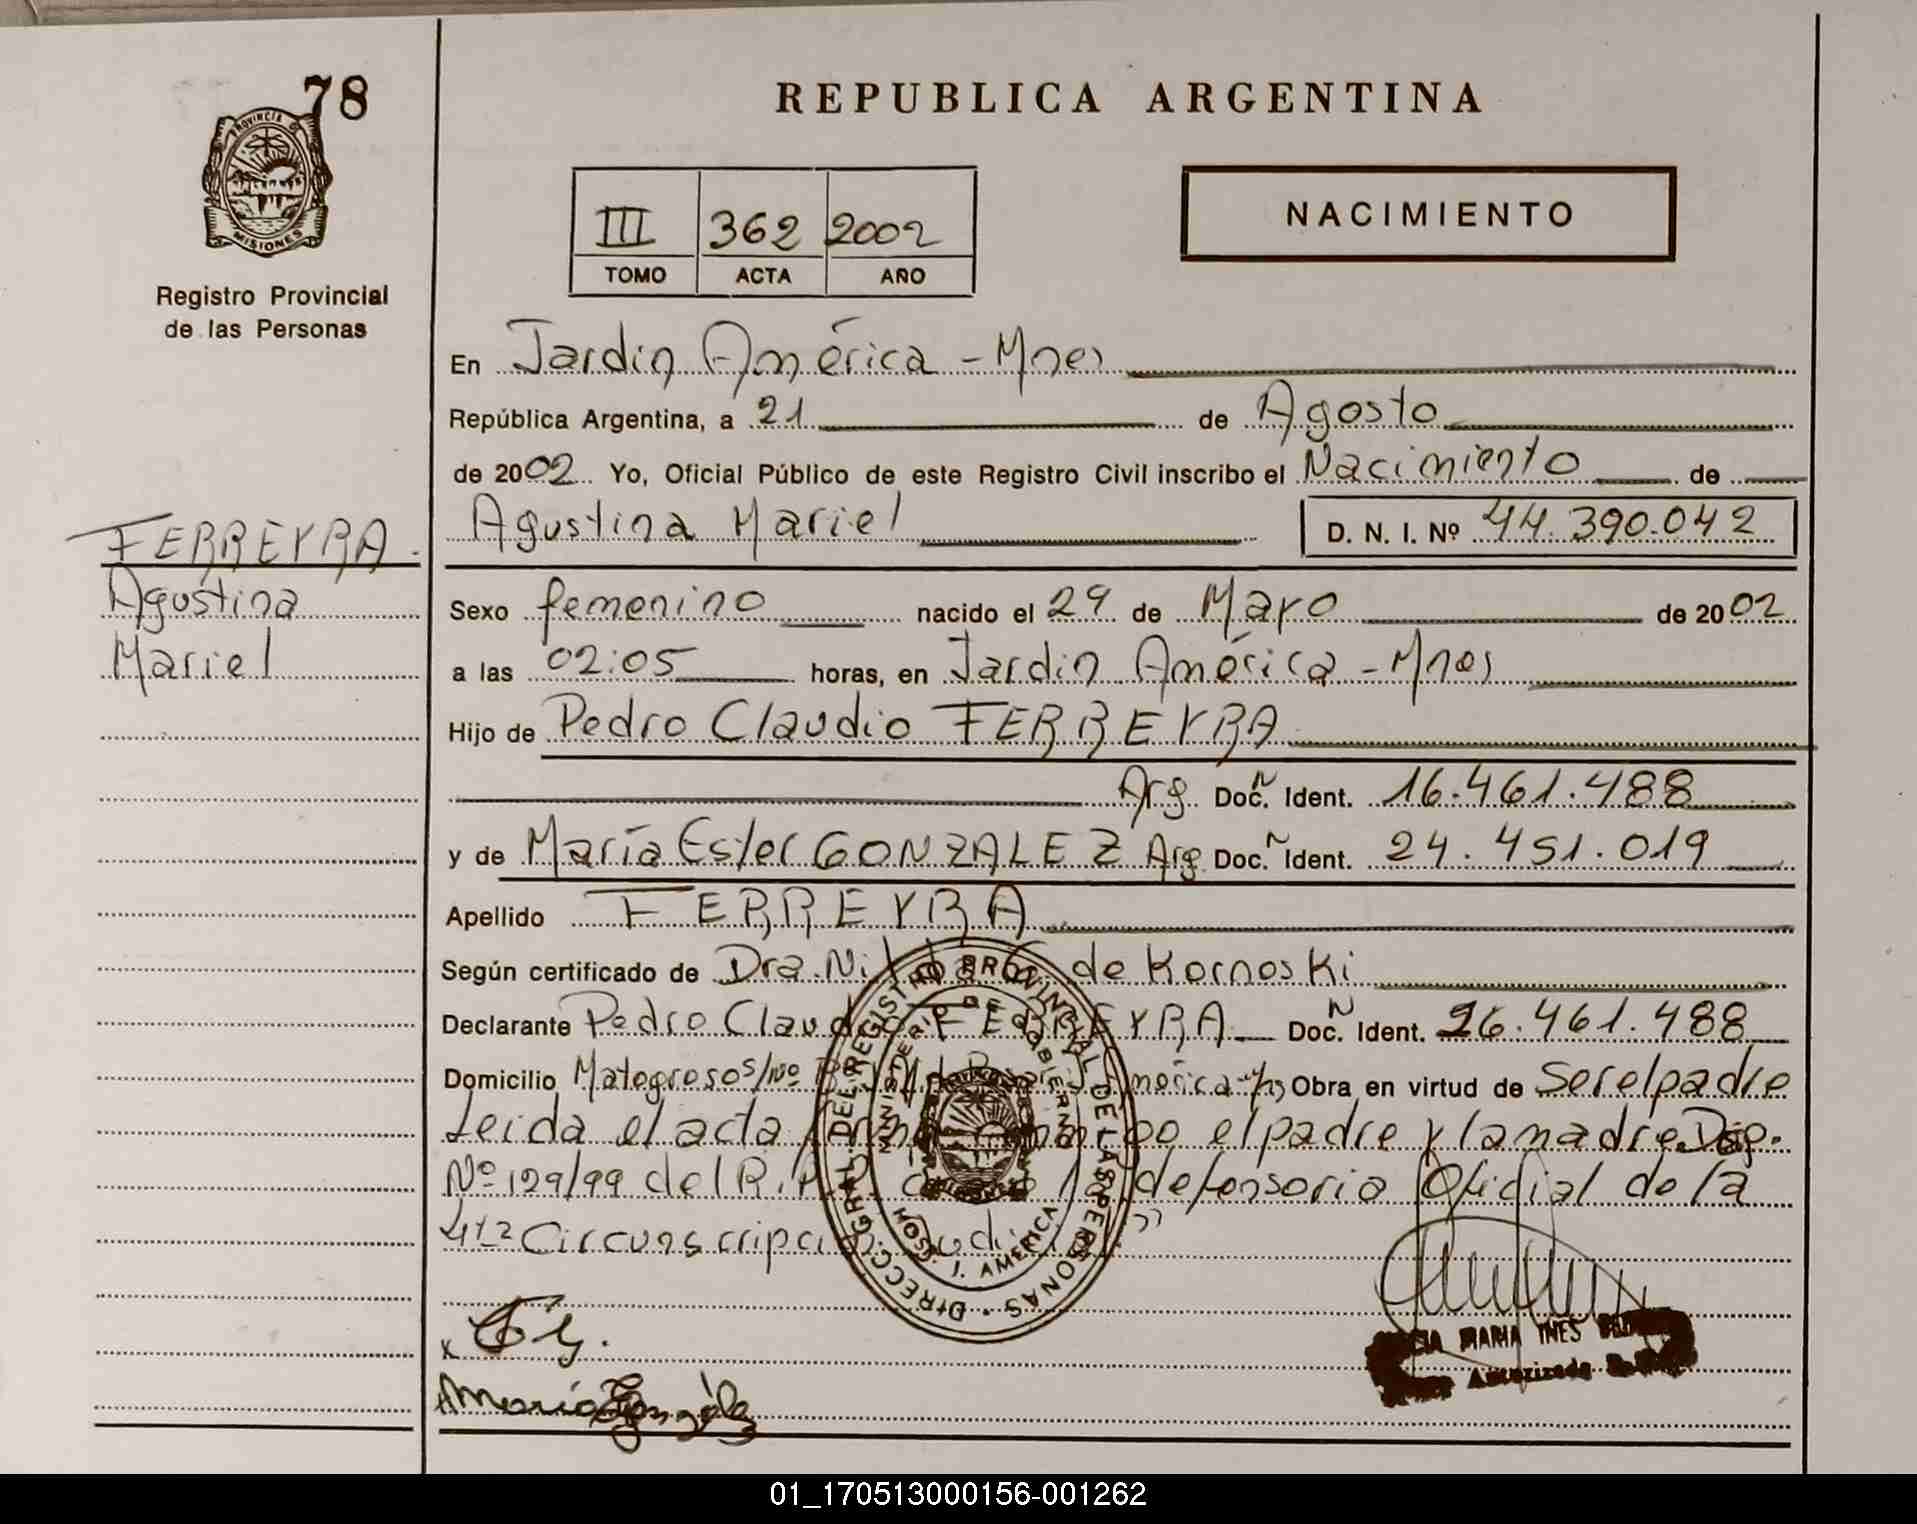 78
PROVINCIA DE
MISIONES
Registro Provincial
de las Personas
REPUBLICA ARGENTINA
III 362 2002
TOMO ACTA AÑO
NACIMIENTO
En Jardin América - Mnes
República Argentina, a 21 de Agosto
de 2002 Yo, Oficial Público de este Registro Civil inscribo el Nacimiento de
Agustina Mariel D. N. I. Nº 44.390.042
FERREYRA.
Agustina
Mariel
Sexo femenino nacido el 29 de Mayo de 2002
a las 02:05 horas, en Jardin América - Mnes
Hijo de Pedro Claudio FERREYRA
Arg. Doc. N Ident. 16.461.488
y de María Ester GONZALEZ Arg. Doc. N Ident. 24.451.019
Apellido FERREYRA
Según certificado de Dra. de Kornoski
Declarante Pedro Claudio FERREYRA Doc. N Ident. 26.461.488
Domicilio Matogroso s/nº América Obra en virtud de Ser el padre
Leida el acta el padre y la madre Disp.
Nº 129/99 del defensoria Oficial de la
4ta Circunscripción
DIRECC. GRAL. DEL REGISTRO PROVINCIAL DE LAS PERSONAS
MINISTERIO DE GOBIERNO
HOSP. J. AMERICA
María González
MARIA INES
Autorizada
01_170513000156-001262